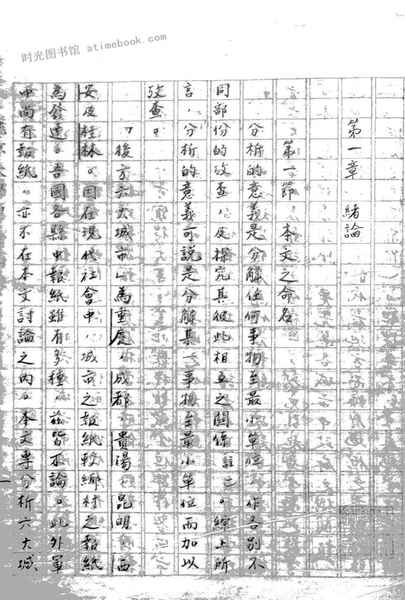 时光图书馆 atimebook.com
第一章　緒論
第一節　本文之命名
分析的意義是分解任何事物至最小單位，作各別不
同部份的考查，及探究其彼此相互之關係（註一）。綜上所
言，分析的意義可說是分解某一事物至最小單位而加以
考查。
「後方六大城市」為重慶，成都，貴陽，昆明，西
安及桂林。因在現代社會中，城市之報紙較鄉村之報紙
為發達。吾國各縣中報紙雖有多種，茲皆不論。此外軍
中尚有報紙。亦不在本文討論之內。本文專分析六大城
一